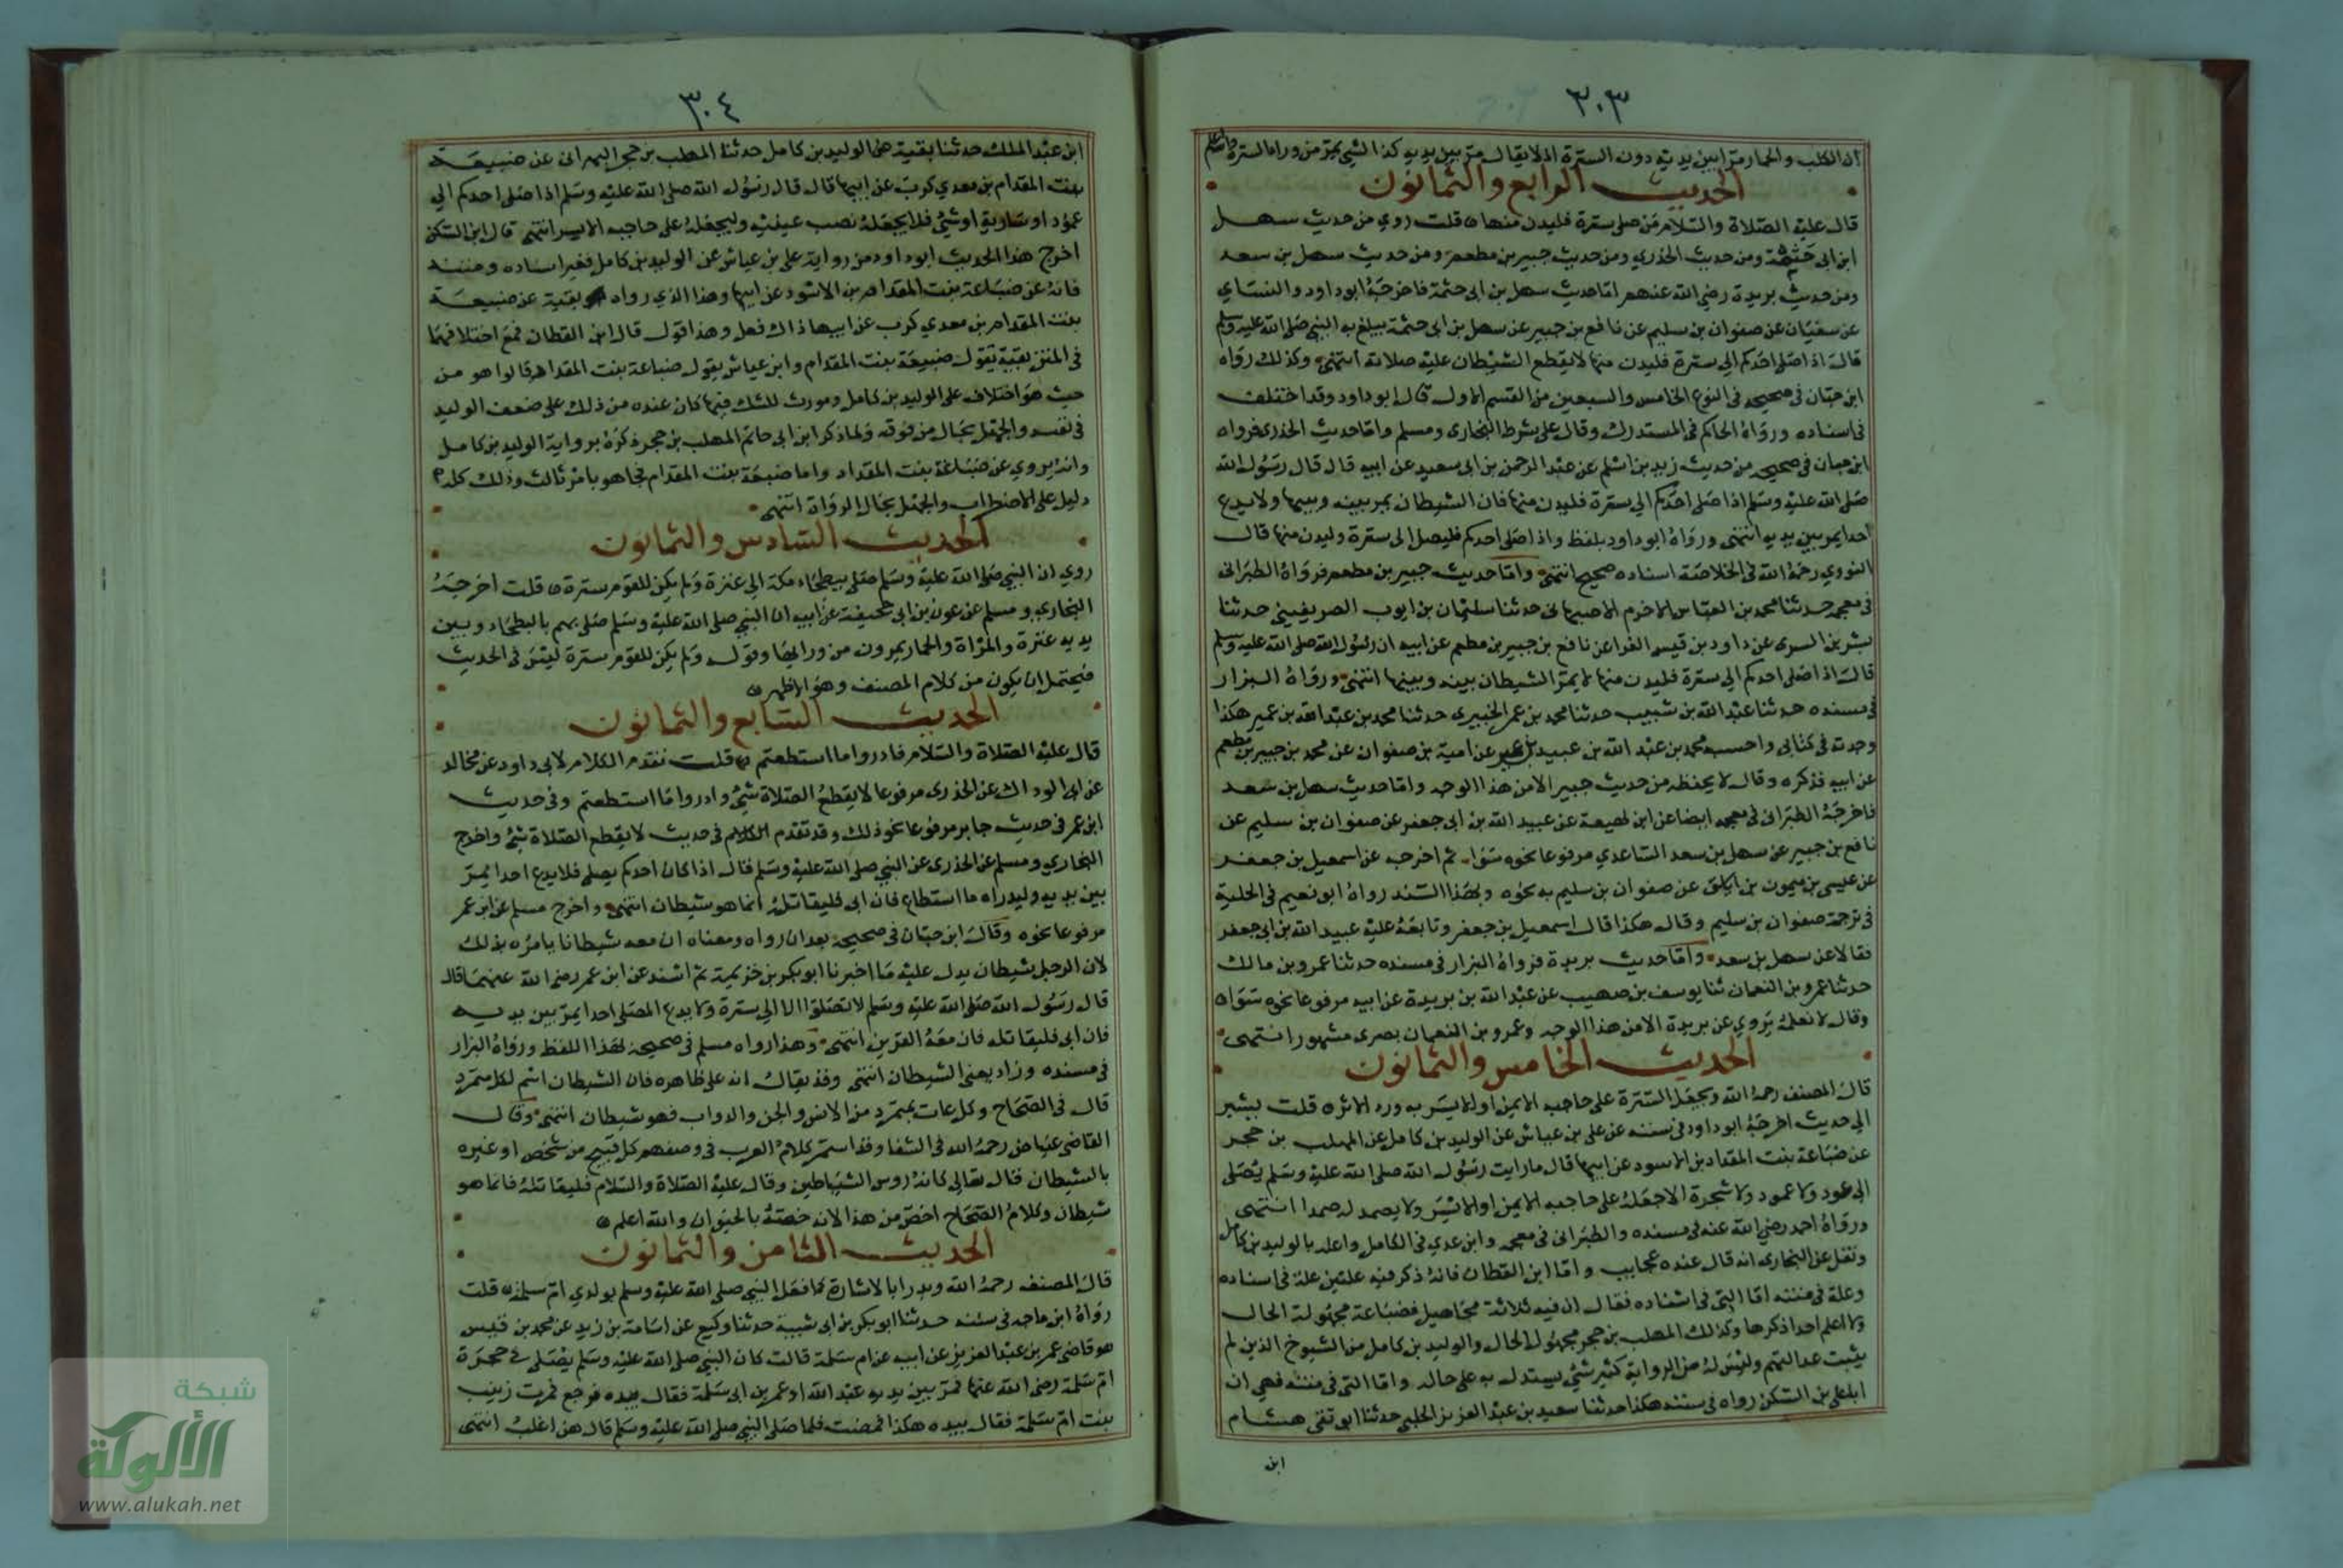 ٣٠٣
ان الكلب والحمار مرّا بين يديه دون السترة اذ لا يقال مرّ بين يديه كذا الشي يمرّ من وراء السترة والله اعلم
الحديث الرابع والثمانون
قال عليه الصّلاة والسّلام من صلى سترة فليدن منها ه قلت روي من حديث سهل
ابن ابى حَثمة ومن حديث الخذري ومن حديث جبير بن مطعم ومن حديث سهل بن سعد
ومن حديث بريدة رضي الله عنهم امّا حديث سهل بن ابى حثمة فاخرجَهُ ابو داود والنسَاي
عن سفيَان عن صفوان بن سليم عن نافع بن جبير عن سهل بن ابى حثمة يبلغ به النبي صَلى الله عليه وسلم
قال اذا صَلى احَدكم الى سترة فليدن منها لا يقطع الشيْطان عليْه صلاته انتهى وكذلك رَوَاه
ابن حبّان فى صحيحه فى النوع الخامس والسبعين من القسم الاول قال ابو داود وقد اختلف
فى اسناده ورَوَاهُ الحاكم فى المستدرك وقال على شرط البخارى ومسلم وامّا حديث الخذرى فرواه
ابن حبان فى صحيحه من حديث زيد بن اسْلم عن عبْد الرحمن بن ابى سعيد عن ابيه قال قال رَسُول الله
صَلى الله عليْه وسَلم اذا صَلى احَدكم الى سترة فليدن منها فان الشيطان يمر بينه وبينها ولا يدع
احدا يمر بين يديه انتهى ورَوَاهُ ابو داود بلفظ واذا صَلى احدكم فليصل الى سترة وليدن منها قال
النووي رحمَهُ الله فى الخلاصَة اسناده صحيح انتهى وامّا حديث جبير بن مطعم فرواهُ الطبرانى
فى معجمه حدثنا محمد بن العبّاس الاخرم الاصبهانى حدثنا سليْمان بن ايوب الصريفينى حدثنا
بشر بن السرى عن داود بن قيس الفرا عن نافع بن جبير بن مطعم عن ابيه ان رسُول الله صلى الله عليه وسلم
قال اذا صَلى احدكم الى سترة فليدن منها لا يمرّ الشيطان بينه وبينها انتهى ورَوَاهُ البزار
فى مسنده حدثنا عبْد الله بن شبيب حدثنا محمد بن عمر الخبيرى حدثنا محمد بن عبْد الله بن عمير هكذا
وجدته فى كتابى واحسبه محمد بن عبْد الله بن عبيد بن عمير عن امية بن صفوان عن محمد بن جبير بن مطعم
عن ابيه فذكره وقال لا يحفظه من حديث جبير الا من هذا الوجه وامّا حديث سهل بن سعد
فاخرجَهُ الطبَرانى فى معجمه ايضا عن ابن لهيعة عن عبيد الله بن ابى جعفر عن صفوان بن سليم عن
نافع بن جبير عن سهل بن سعد السّاعدي مرفوعا نحوه سَوَا ثم اخرجه عن اسمعيل بن جعفر
عن عيسى بن ميمون بن عن صفوان بن سليم به نحوه وبهذا السّند رواهُ ابو نعيم فى الحلية
فى ترجمة صفوان بن سليم وقال هكذا قال اسمعيل بن جعفر وتابعَهُ عليْه عبيد الله بن ابى جعفر
فقالا عن سهل بن سعد وامّا حديث بريدة فرواهُ البزار فى مسنده حدثنا عمرو بن مالك
حدثنا عمرو بن النعمان ثنا يوسف بن صهيب عن عبْد الله بن بريدة عن ابيه مرفوعا نحوه سَوَا ه
وقال لا نعلمُه يَروي عن بريدة الا من هذا الوجه وعمرو بن النعمان بصرى مشهور انتهى
الحديث الخامس والثمانون
قال المصنف رحمهُ الله ويجعَل السّترة على حاجبه الايمن او الايسَر به ورد الاثر ه قلت يشير
الى حديث اخرجَهُ ابو داود فى سننه عن على بن عياش عن الوليد بن كامل عن المهلب بن حجر
عن ضبَاعة بنت المقداد بن الاسود عن ابيها قال ما رايت رسُول الله صلى الله عليْه وسَلم يصَلى
الى عود ولا عمود ولا شجرة الا جعَلهُ على حاجبه الايمن او الايسَر ولا يصمد له صمدا انتهى
ورَوَاهُ احمد رضي الله عنه فى مسنده والطبَرانى فى معجمه وابن عدي فى الكامل واعله بالوليد بن كامل
ونقل عن البخارى انه قال عنده عجايب وامّا ابن القطان فانهُ ذكر فيه علتين علة فى اسناده
وعلة فى متنه امّا التى فى اسْناده فقال ان فيه ثلاثة مجَاهيل فضبَاعة مجهُولة الحال
ولا اعلم احدا ذكرها وكذلك المهلب بن حجر مجهُول الحال والوليد بن كامل من الشيوخ الذين لم
يثبت عدالتهم وليسَ لهُ من الرواية كثير شئ يستدل به على حاله وامّا التى فى متنه فهي ان
ابا على بن السّكن رواه فى سننه هكذا حدثنا سعيد بن عبْد العزيز الحلبى حدثنا ابو تقى هشام
ابن
٣٠٤
ابن عبْد الملك حدثنا بقية عن الوليد بن كامل حدثنا المهلب بن حجر البهرانى عن ضبيعَة
بنت المقدام بن معدي كرب عن ابيها قال قال رسُول الله صلى الله عليْه وسَلم اذا صَلى احدكم الى
عمُود او سَارية او شئ فلا يجعَلهُ نصب عينيْه وليجعَلهُ على حاجبه الايسر انتهى قال ابن السّكن
اخرج هذا الحديث ابو داود من رواية على بن عياش عن الوليد بن كامل فغير اسناده ومتنه
فانهُ عن ضبَاعة بنت المقدام بن الاسْود عن ابيها وهذا الذي رواه بقية عن ضبيعَة
بنت المقدام بن معدي كرب عن ابيها ذاك فعل وهذا قول قال ابن القطان فمع اختلافهمَا
فى المتن بقية يَقول ضبيعَة بنت المقدام وابن عياش يقول ضباعة بنت المقدام قالوا هو من
حيث هوَ اختلاف على الوليد بن كامل ومورث للشك فيما كان عنده من ذلك على ضعف الوليد
فى نفسه والجهْل بحَال من فوقه ولما ذكر ابن ابى حاتم المهلب بن حجر ذكرَهُ برواية الوليد بن كامل
وانهُ يروي عن ضبَاعة بنت المقداد واما ضبيعَة بنت المقدام فجا هو بامر ثالث وذلك كله
دليل على الاضطراب والجهْل بحَال الروَاة انتهى
الحديث السّادس والثمانون
روي ان النبي صَلى الله عليْه وسَلم صَلى ببطحَاء مكة الى عنزة ولم يكن للقوم سترة ه قلت اخرجَهُ
البخارى ومسلم عن عون بن ابى جحيفة عن ابيه ان النبى صلى الله عليْه وسَلم صَلى بهم بالبطحَاء وبين
يديه عنزة والمرْاة والحمار يمرون من ورايهَا وقول ولم يكن للقوم سترة ليْسَ فى الحديث
فيحتمل ان يكون من كلام المصنف وهوَ الاظهر ه
الحديث السّابع والثمانون
قال عليْه الصّلاة والسّلام فادروا ما استطعتم ه قلت تقدم الكلام لابى داود عن مجالد
عن ابى الوداك عن الخذرى مرفوعا لا يقطعُ الصّلاة شئ وادروا مَا استطعتم وفى حديث
ابن عمر فى حديث جابر مرفوعا نحو ذلك وقد تقدم الكلام فى حديث لا يقطع الصّلاة شئ واخرج
البخاري ومسلم عن الخذرى عن النبي صلى الله عليْه وسَلم قال اذا كان احدكم يصلى فلا يدع احدا يمرّ
بين يديه وليدراه ما استطاع فان ابى فليقاتلهُ انما هو شيطان انتهى واخرج مسلم عن ابن عمر
مرفوعا نحوه وقال ابن حبّان فى صحيحه بعد ان رواه ومعناه ان معه شيطانا يامرُه بذلك
لان الرجل شيطان يدل عليْه مَا اخبرنا ابو بكر بن خزيمة ثم اسْند عن ابن عمر رضي الله عنهمَا قال
قال رسُول الله صَلى الله عليْه وسَلم لا تصَلوا الا الى سترة ولا يدع المصَلى احدا يمرّ بين يديه
فان ابى فليقاتله فان معَهُ القرين انتهى وهذا رواه مسلم فى صحيحه بهذا اللفظ ورواهُ البزار
فى مسنده وزاد يعنى الشيطان انتهى وقد يقال انه على ظاهره فان الشيطان اسْم لكل متمَرد
قال فى الصّحَاح وكل عات متمَرد من الانس والجن والدواب فهو شيطان انتهى وقال
القاضي عيَاض رحمهُ الله فى الشفا وقد استمر كلامُ العرب فى وصفهم كل قبيح من شخص او غيره
بالشيطان قال تعَالى كانهُ روس الشيَاطين وقال عليْه الصّلاة والسّلام فليقاتلهُ فانما هو
شيطان وكلامُ الصّحَاح اخصّ من هذا لانه خصّهُ بالحيَوان والله اعلم ه
الحديث الثامن والثمانون
قال المصنف رحمهُ الله ويدرا بالاشارة كما فعَل النبي صلى الله عليْه وسلم بولدي امّ سلمَة ه قلت
روَاهُ ابن ماجه فى سننه حدثنا ابو بكر بن ابى شيبة حدثنا وكيع عن اسَامة بن زيد عن محمد بن قيس
هو قاضى عمر بن عبْد العزيز عن ابيه عن ام سَلمَة قالت كان النبي صلى الله عليْه وسَلم يصَلى فى حجرَة
امّ سَلمَة رضى الله عنها فمرّ بين يديه عبْد الله او عمر بن ابى سَلمَة فقال بيده فرجع فمرت زينب
بنت امّ سَلمَة فقال بيده هكذا فمضت فلما صَلى النبي صلى الله عليْه وسَلم قال هن اغلبُ انتهى
شبكة
الألوكة
www.alukah.net